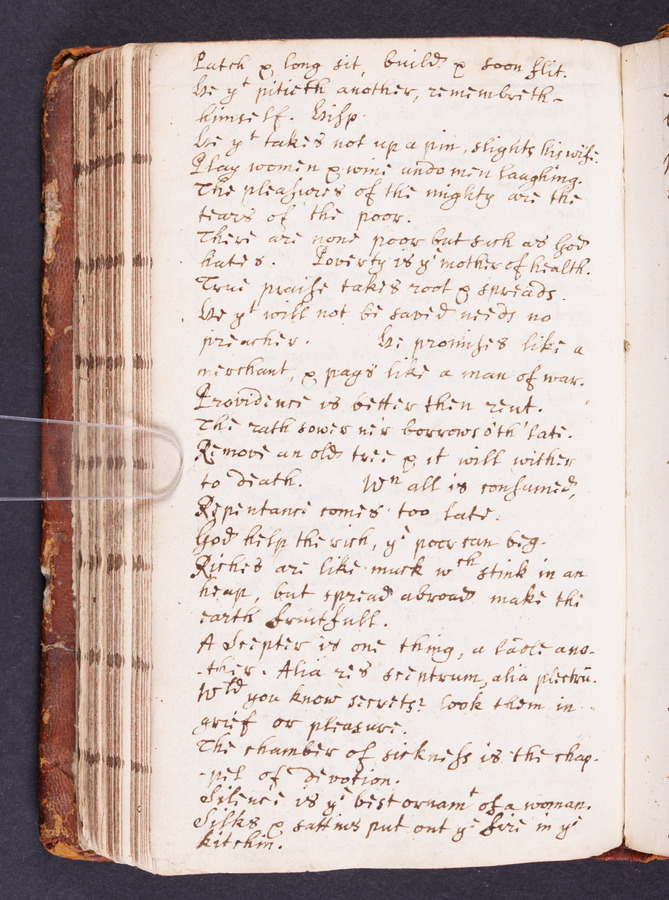 Patch & long sit, build & soon flit.
He yt pitieth another, remembreth
himself. Hisp.
He yt takes not up a pin, slights his wife.
Play women & wine undo men laughing.
The pleasures of the mighty are the
tears of the poor.
There are none poor but such as God
hates. Poverty is ye mother of health.
True praise takes root & spreads.
He yt will not be saved needs no
preacher. He promises like a
merchant, & pays like a man of war.
Providence is better then rent.
The rath sower ne'r borrows o'th' late.
Remove an old tree & it will wither
to death. Wn all is consumed,
Repentance comes too late.
God help the rich, ye poor can beg.
Riches are like muck wch stink in an
heap, but spread abroad make the
earth fruitfull.
A Scepter is one thing, a ladle ano-
-ther. Alia res sceptrum, alia plectrū.
Wld you know secrets? look them in
grief or pleasure.
The chamber of sickness is the chap-
-pel of devotion.
Silence is ye best ornamt of a woman.
Silks & sattins put out ye fire in ye
kitchin.